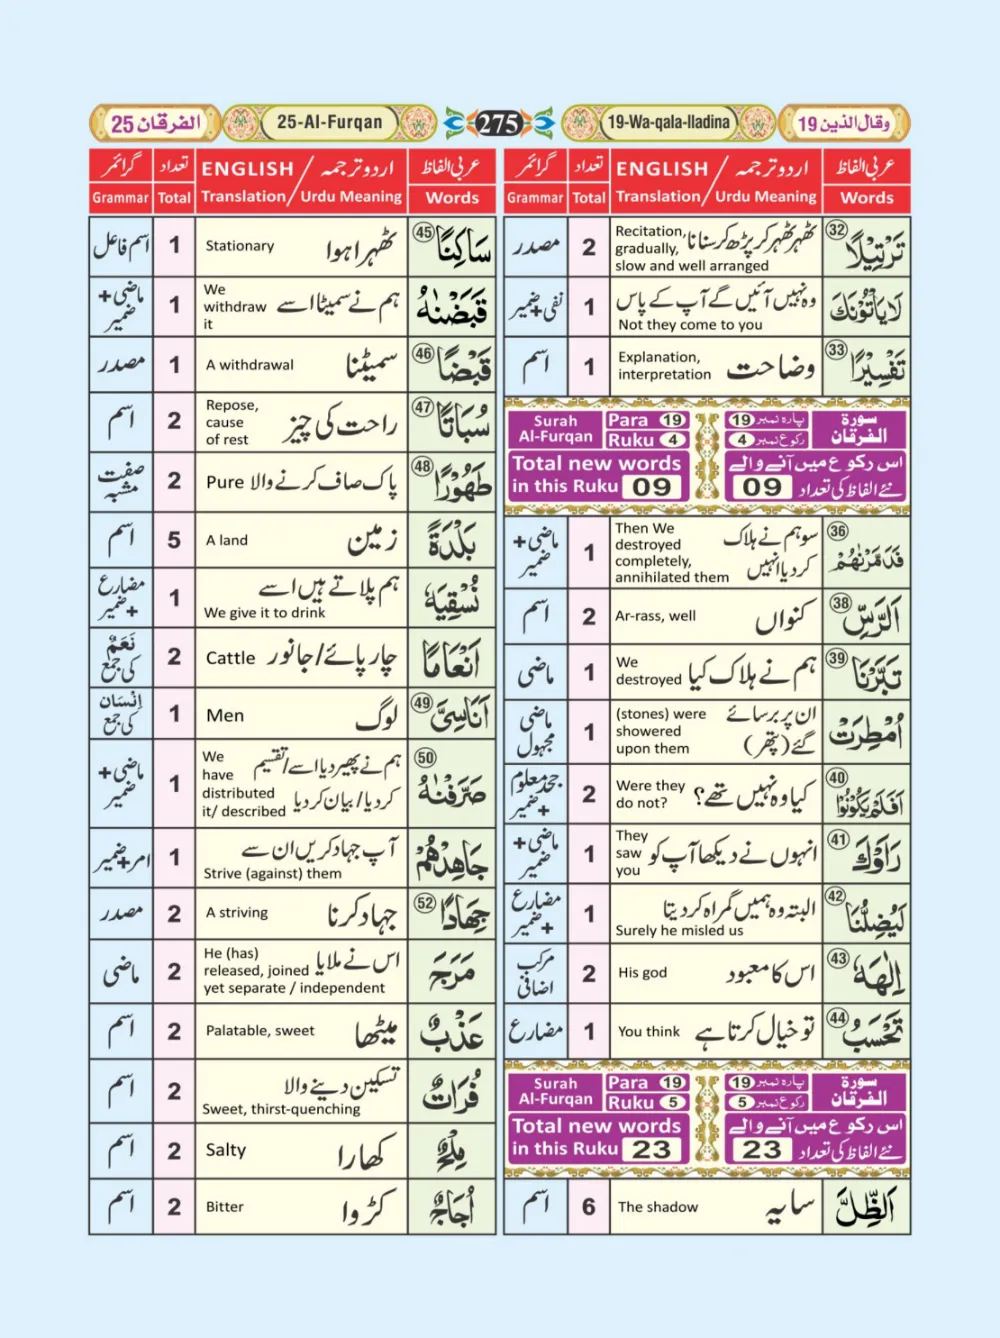 وقال الذين 19
19-Wa-qala-lladina
275
25-Al-Furqan
الفرقان 25
عربی الفاظ
اردو ترجمہ / ENGLISH
تعداد
گرائمر
Words
Translation / Urdu Meaning
Total
Grammar
32 تَرْتِيْلًا
ٹھہر ٹھہر کر پڑھ کر سنانا
Recitation,
gradually,
slow and well arranged
2
مصدر
لَا يَاْتُوْنَكَ
وہ نہیں آئیں گے آپ کے پاس
Not they come to you
1
نفی+ضمیر
33 تَفْسِيْرًا
وضاحت
Explanation,
interpretation
1
اسم
سورة الفرقان
پارہ نمبر 19
رکوع نمبر 4
Para 19
Ruku 4
Surah
Al-Furqan
اس رکوع میں آنے والے
نئے الفاظ کی تعداد 09
Total new words
in this Ruku 09
36 فَدَمَّرْنٰهُمْ
سو ہم نے ہلاک
کر دیا انہیں
Then We
destroyed
completely,
annihilated them
1
ماضی+
ضمیر
38 اَلرَّسِّ
کنواں
Ar-rass, well
2
اسم
39 تَبَّرْنَا
ہم نے ہلاک کیا
We
destroyed
1
ماضی
اُمْطِرَتْ
ان پر برسائے
گئے (پتھر)
(stones) were
showered
upon them
1
ماضی
مجہول
40 اَفَلَمْ يَكُوْنُوْا
کیا وہ نہیں تھے؟
Were they
do not?
2
جحد معلوم
+ضمیر
41 رَاَوْكَ
انہوں نے دیکھا آپ کو
They
saw
you
1
ماضی+
ضمیر
42 لَيُضِلُّنَا
البتہ وہ ہمیں گمراہ کر دیتا
Surely he misled us
1
مضارع
+ضمیر
43 اِلٰهَهٗ
اس کا معبود
His god
2
مرکب
اضافی
44 تَحْسَبُ
تو خیال کرتا ہے
You think
1
مضارع
سورة الفرقان
پارہ نمبر 19
رکوع نمبر 5
Para 19
Ruku 5
Surah
Al-Furqan
اس رکوع میں آنے والے
نئے الفاظ کی تعداد 23
Total new words
in this Ruku 23
اَلظِّلَّ
سایہ
The shadow
6
اسم
عربی الفاظ
اردو ترجمہ / ENGLISH
تعداد
گرائمر
Words
Translation / Urdu Meaning
Total
Grammar
45 سَاكِنًا
ٹھہرا ہوا
Stationary
1
اسم فاعل
قَبَضْنٰهُ
ہم نے سمیٹا اسے
We
withdraw
it
1
ماضی+
ضمیر
46 قَبْضًا
سمیٹنا
A withdrawal
1
مصدر
47 سُبَاتًا
راحت کی چیز
Repose,
cause
of rest
2
اسم
48 طَهُوْرًا
پاک صاف کرنے والا
Pure
2
صفت
مشبہ
بَلْدَةً
زمین
A land
5
اسم
نُسْقِيَهٗ
ہم پلاتے ہیں اسے
We give it to drink
1
مضارع
+ضمیر
اَنْعَامًا
چارپائے/جانور
Cattle
2
نَعَمٌ
کی جمع
49 اَنَاسِيَّ
لوگ
Men
1
اِنْسَان
کی جمع
50 صَرَّفْنٰهُ
ہم نے پھیر دیا اسے/تقسیم
کر دیا/ بیان کر دیا
We
have
distributed
it/ described
1
ماضی+
ضمیر
جَاهِدْهُمْ
آپ جہاد کریں ان سے
Strive (against) them
1
امر+ضمیر
52 جِهَادًا
جہاد کرنا
A striving
2
مصدر
مَرَجَ
اس نے ملایا
He (has)
released, joined
yet separate / independent
2
ماضی
عَذْبٌ
میٹھا
Palatable, sweet
2
اسم
فُرَاتٌ
تسکین دینے والا
Sweet, thirst-quenching
2
اسم
مِلْحٌ
کھارا
Salty
2
اسم
اُجَاجٌ
کڑوا
Bitter
2
اسم